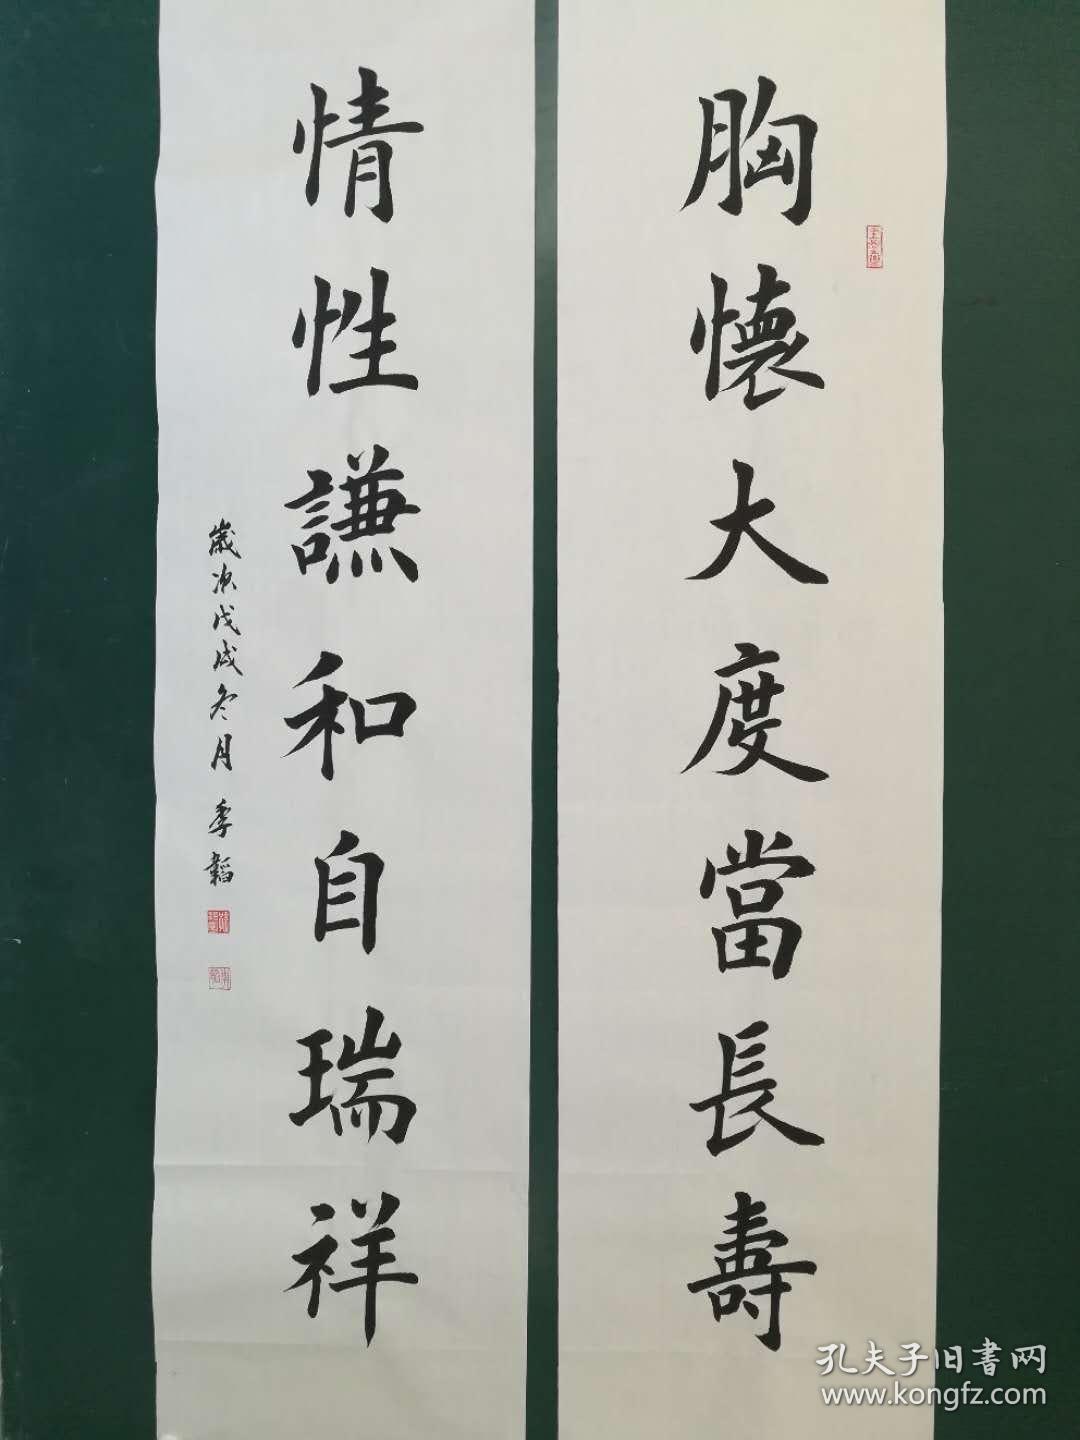 胸懷大度當長壽
情性謙和自瑞祥
歲次戊戌冬月 季韜
孔夫子旧書网
www.kongfz.com